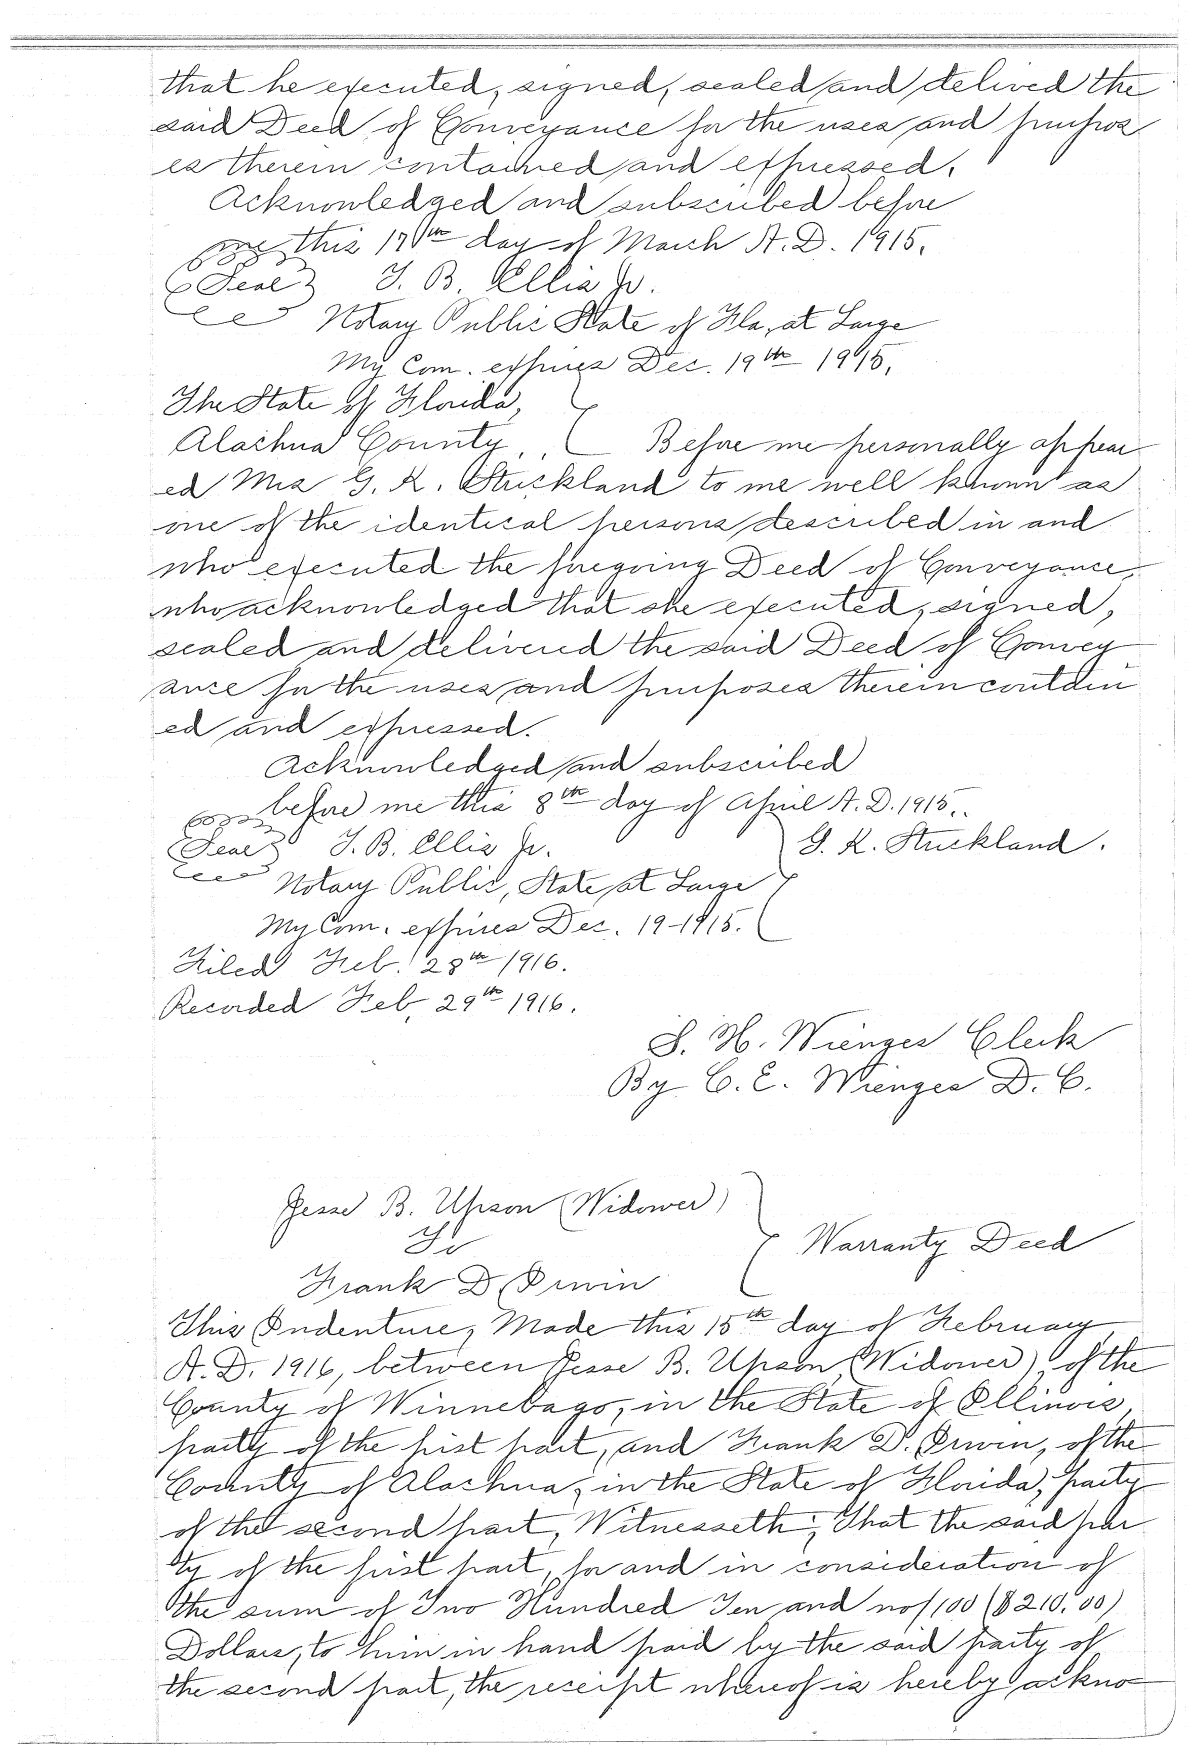 that he executed, signed, sealed and delived the
said Deed of Conveyance for the uses and purpos
es therein contained and expressed.
Acknowledged and subscribed before
me this 17th day of March A.D. 1915.
Seal T. B. Ellis Jr.
Notary Public State of Fla, at Large
My Com. expires Dec. 19th 1915.
The State of Florida,
Alachua County. Before me personally appear
ed Mrs G. K. Strickland to me well known as
one of the identical persons described in and
who executed the foregoing Deed of Conveyance,
who acknowledged that she executed, signed,
sealed and delivered the said Deed of Convey
ance for the uses and purposes therein contain
ed and expressed.
Acknowledged and subscribed
before me this 8th day of April A.D. 1915.
Seal T. B. Ellis Jr. G. K. Strickland.
Notary Public, State at Large
My Com. expires Dec. 19-1915.
Filed Feb. 28th 1916.
Recorded Feb, 29th 1916.
S. H. Wienges Clerk
By C. E. Wienges D. C.
Jesse B. Upson (Widower)
To Warranty Deed
Frank D. Irwin
This Indenture, Made this 15th day of February
A.D. 1916, between Jesse B. Upson, (Widower), of the
County of Winnebago, in the State of Illinois,
party of the first part, and Frank D. Irwin, of the
County of Alachua, in the State of Florida, party
of the second part, Witnesseth; That the said par
ty of the first part, for and in consideration of
the sum of Two Hundred Ten and no/100 ($210.00)
Dollars, to him in hand paid by the said party of
the second part, the receipt whereof is hereby ackno